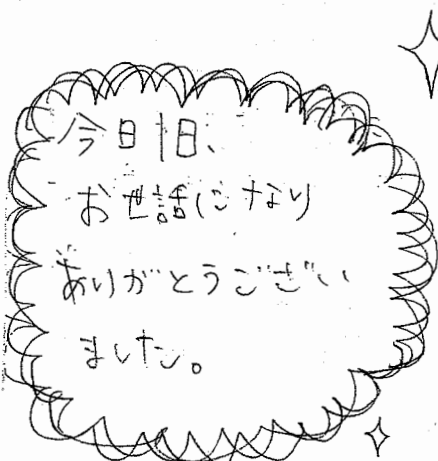 今日1日、
お世話になり
ありがとうござい
ました。